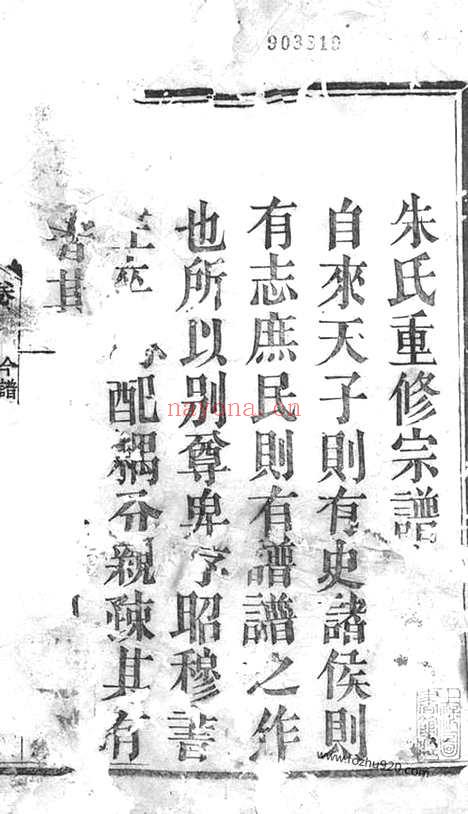 903519
朱氏重修宗譜
自來天子則有史諸侯則
有志庶民則有譜譜之作
也所以別尊卑序昭穆書
配耦分親踈其有
者其
卷
今譜
nayona.cn
www.fozhu920.com